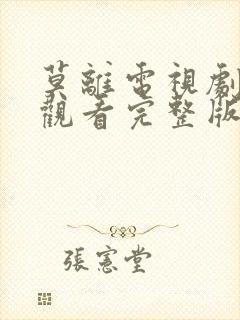 莫離電視劇
觀看完整版
張憲堂